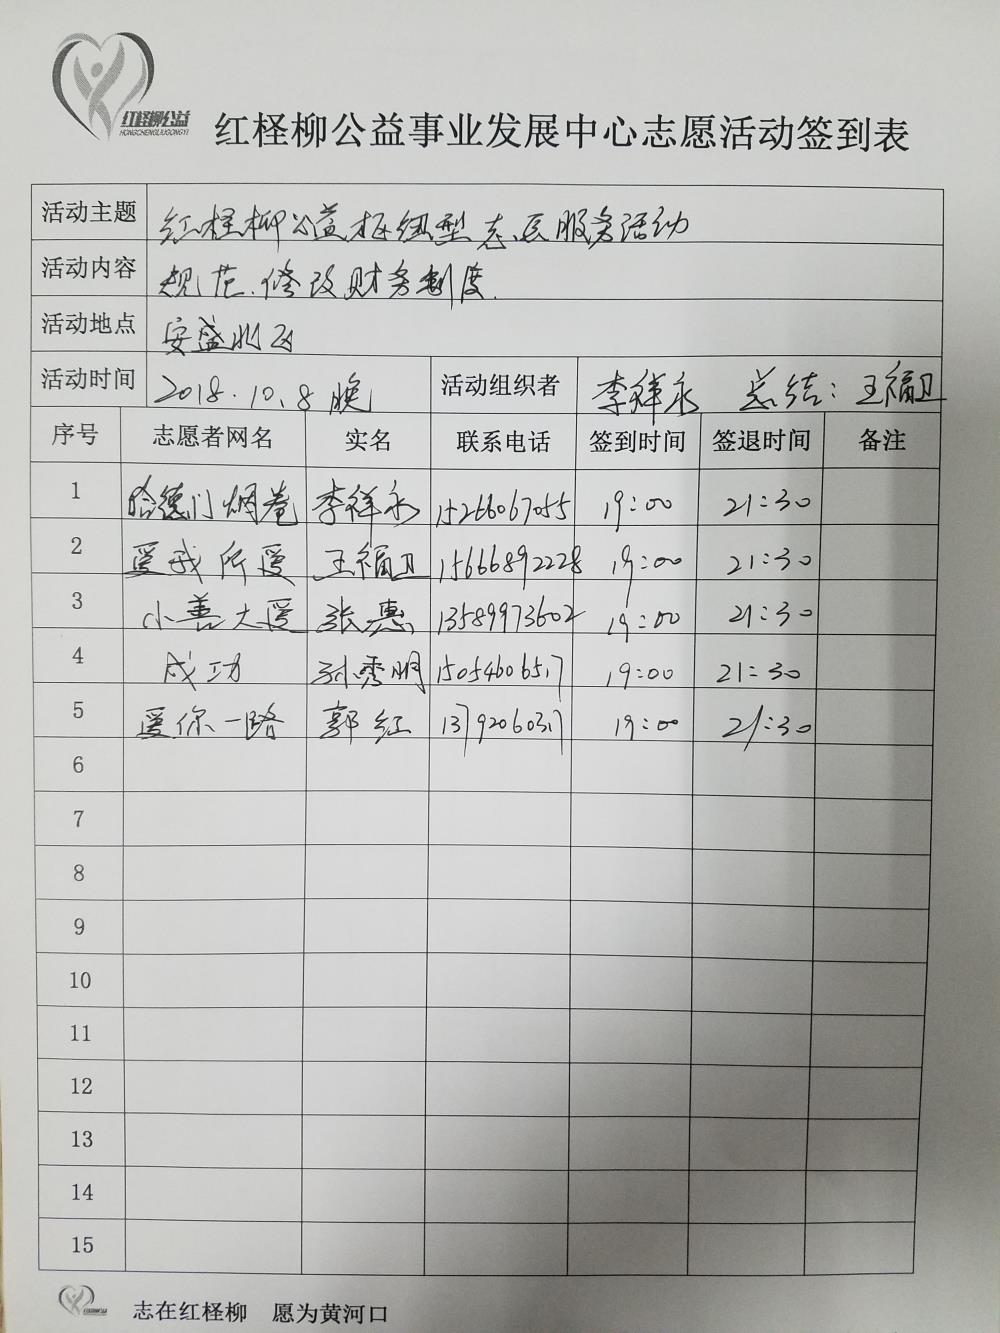 红柽柳公益
HONGCHENGLIUGONGYI
红柽柳公益事业发展中心志愿活动签到表
活动主题 红柽柳公益枢纽型志愿服务活动
活动内容 规范、修改财务制度.
活动地点 安盛水云
活动时间 2018.10.8晚 活动组织者 李祥永 总结：王福卫
序号 志愿者网名 实名 联系电话 签到时间 签退时间 备注
1 哈德门烟卷 李祥永 15266067055 19:00 21:30
2 爱我所爱 王福卫 15666892228 19:00 21:30
3 小善大爱 张惠 13589973602 19:00 21:30
4 成功 孙秀明 15054606517 19:00 21:30
5 爱你一路 郭红 13792060317 19:00 21:30
6
7
8
9
10
11
12
13
14
15
志在红柽柳 愿为黄河口